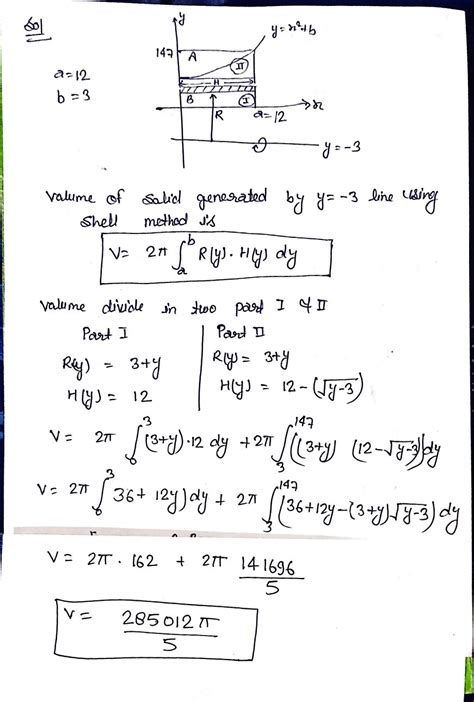 Sol
y
y=x²+b
147
A
II
H
a=12
b=3
B
I
x
R
a=12
y=-3
Volume of solid generated by y=-3 line using
shell method is
V= 2π ∫_a^b R(y)· H(y) dy
Volume divide in two part I & II
Part I
R(y) = 3+y
H(y) = 12
Part II
R(y)= 3+y
H(y) = 12-(√y-3)
V= 2π ∫_0^3 (3+y)·12 dy + 2π ∫_3^147 ((3+y) (12-√y-3)) dy
V= 2π ∫_0^3 36+ 12y) dy + 2π ∫_3^147 (36+12y-(3+y)√y-3) dy
V= 2π · 162 + 2π 141696/5
V= 285012 π/5